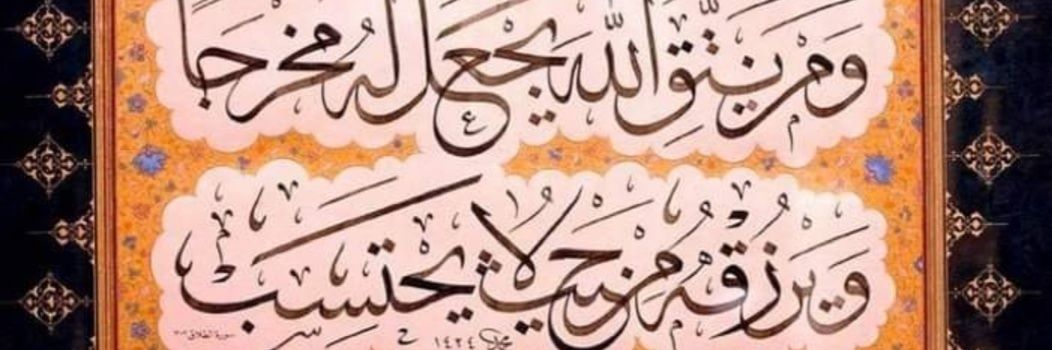 وَمَنْ يَتَّقِ اللَّهَ يَجْعَلْ لَهُ مَخْرَجًا
وَيَرْزُقْهُ مِنْ حَيْثُ لَا يَحْتَسِبُ
سورة الطلاق
١٤٢٤